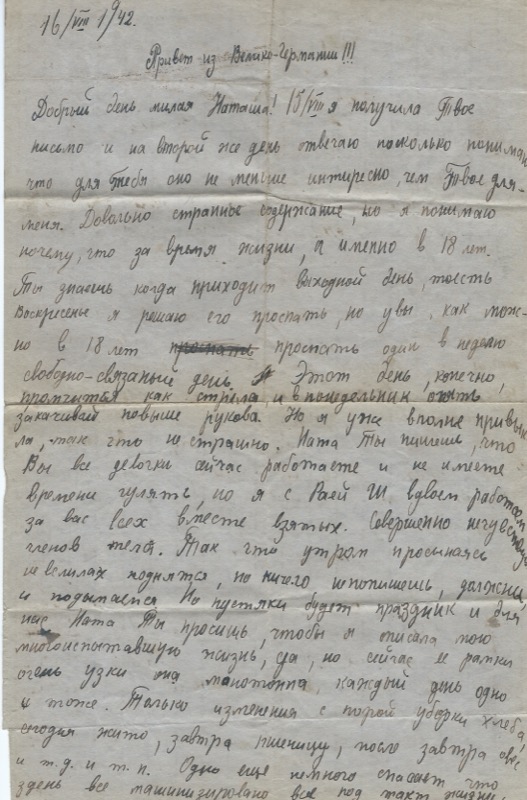 16/VIII 1942.
Привет из Велико-Германии!!!
Добрый день милая Наташа! 15/VIII я получила Твое
письмо и на второй же день отвечаю посколько понимаю
что для тебя оно не меньше интиресно, чем Твое для-
меня. Довольно странное содержание, но я понимаю
почему, что за время жизни, а именно в 18 лет.
Ты знаешь когда приходит выходной день, тоесть
Воскресенье я решаю его проспать, но увы, как мож-
но в 18 лет проспать один в неделю
свободно-связаный день. Этот день, конечно,
промчится как стрела, и в понедельник опять
закачивай повыше рукова. Но я уже вполне привык
ла, так что не страшно. Ната Ты пишеш, что
Вы все девочки сейчас работаете и не имеете
времени гулять, но я с Раей Ш. вдвоем работаем
за вас всех вместе взятых. Совершенно нечувствую
членов тела. Так что утром просыпаясь
не в силах поднятся, но ничего непопишешь, должны
и подымаемся Но пустяки будет праздник и для
нас Ната Ты просишь, чтобы я описала мою
многоиспытавшую жизнь, да, но сейчас ее рамки
очень узки она манотонна каждый день одно
и тоже. Только изменения с порой уборки хлеба,
сегодня жито, завтра пшеницу, после завтра овес
и т.д. и т.п. Одно еще немного спасает что
здесь все машинизировано все под такт жизни.